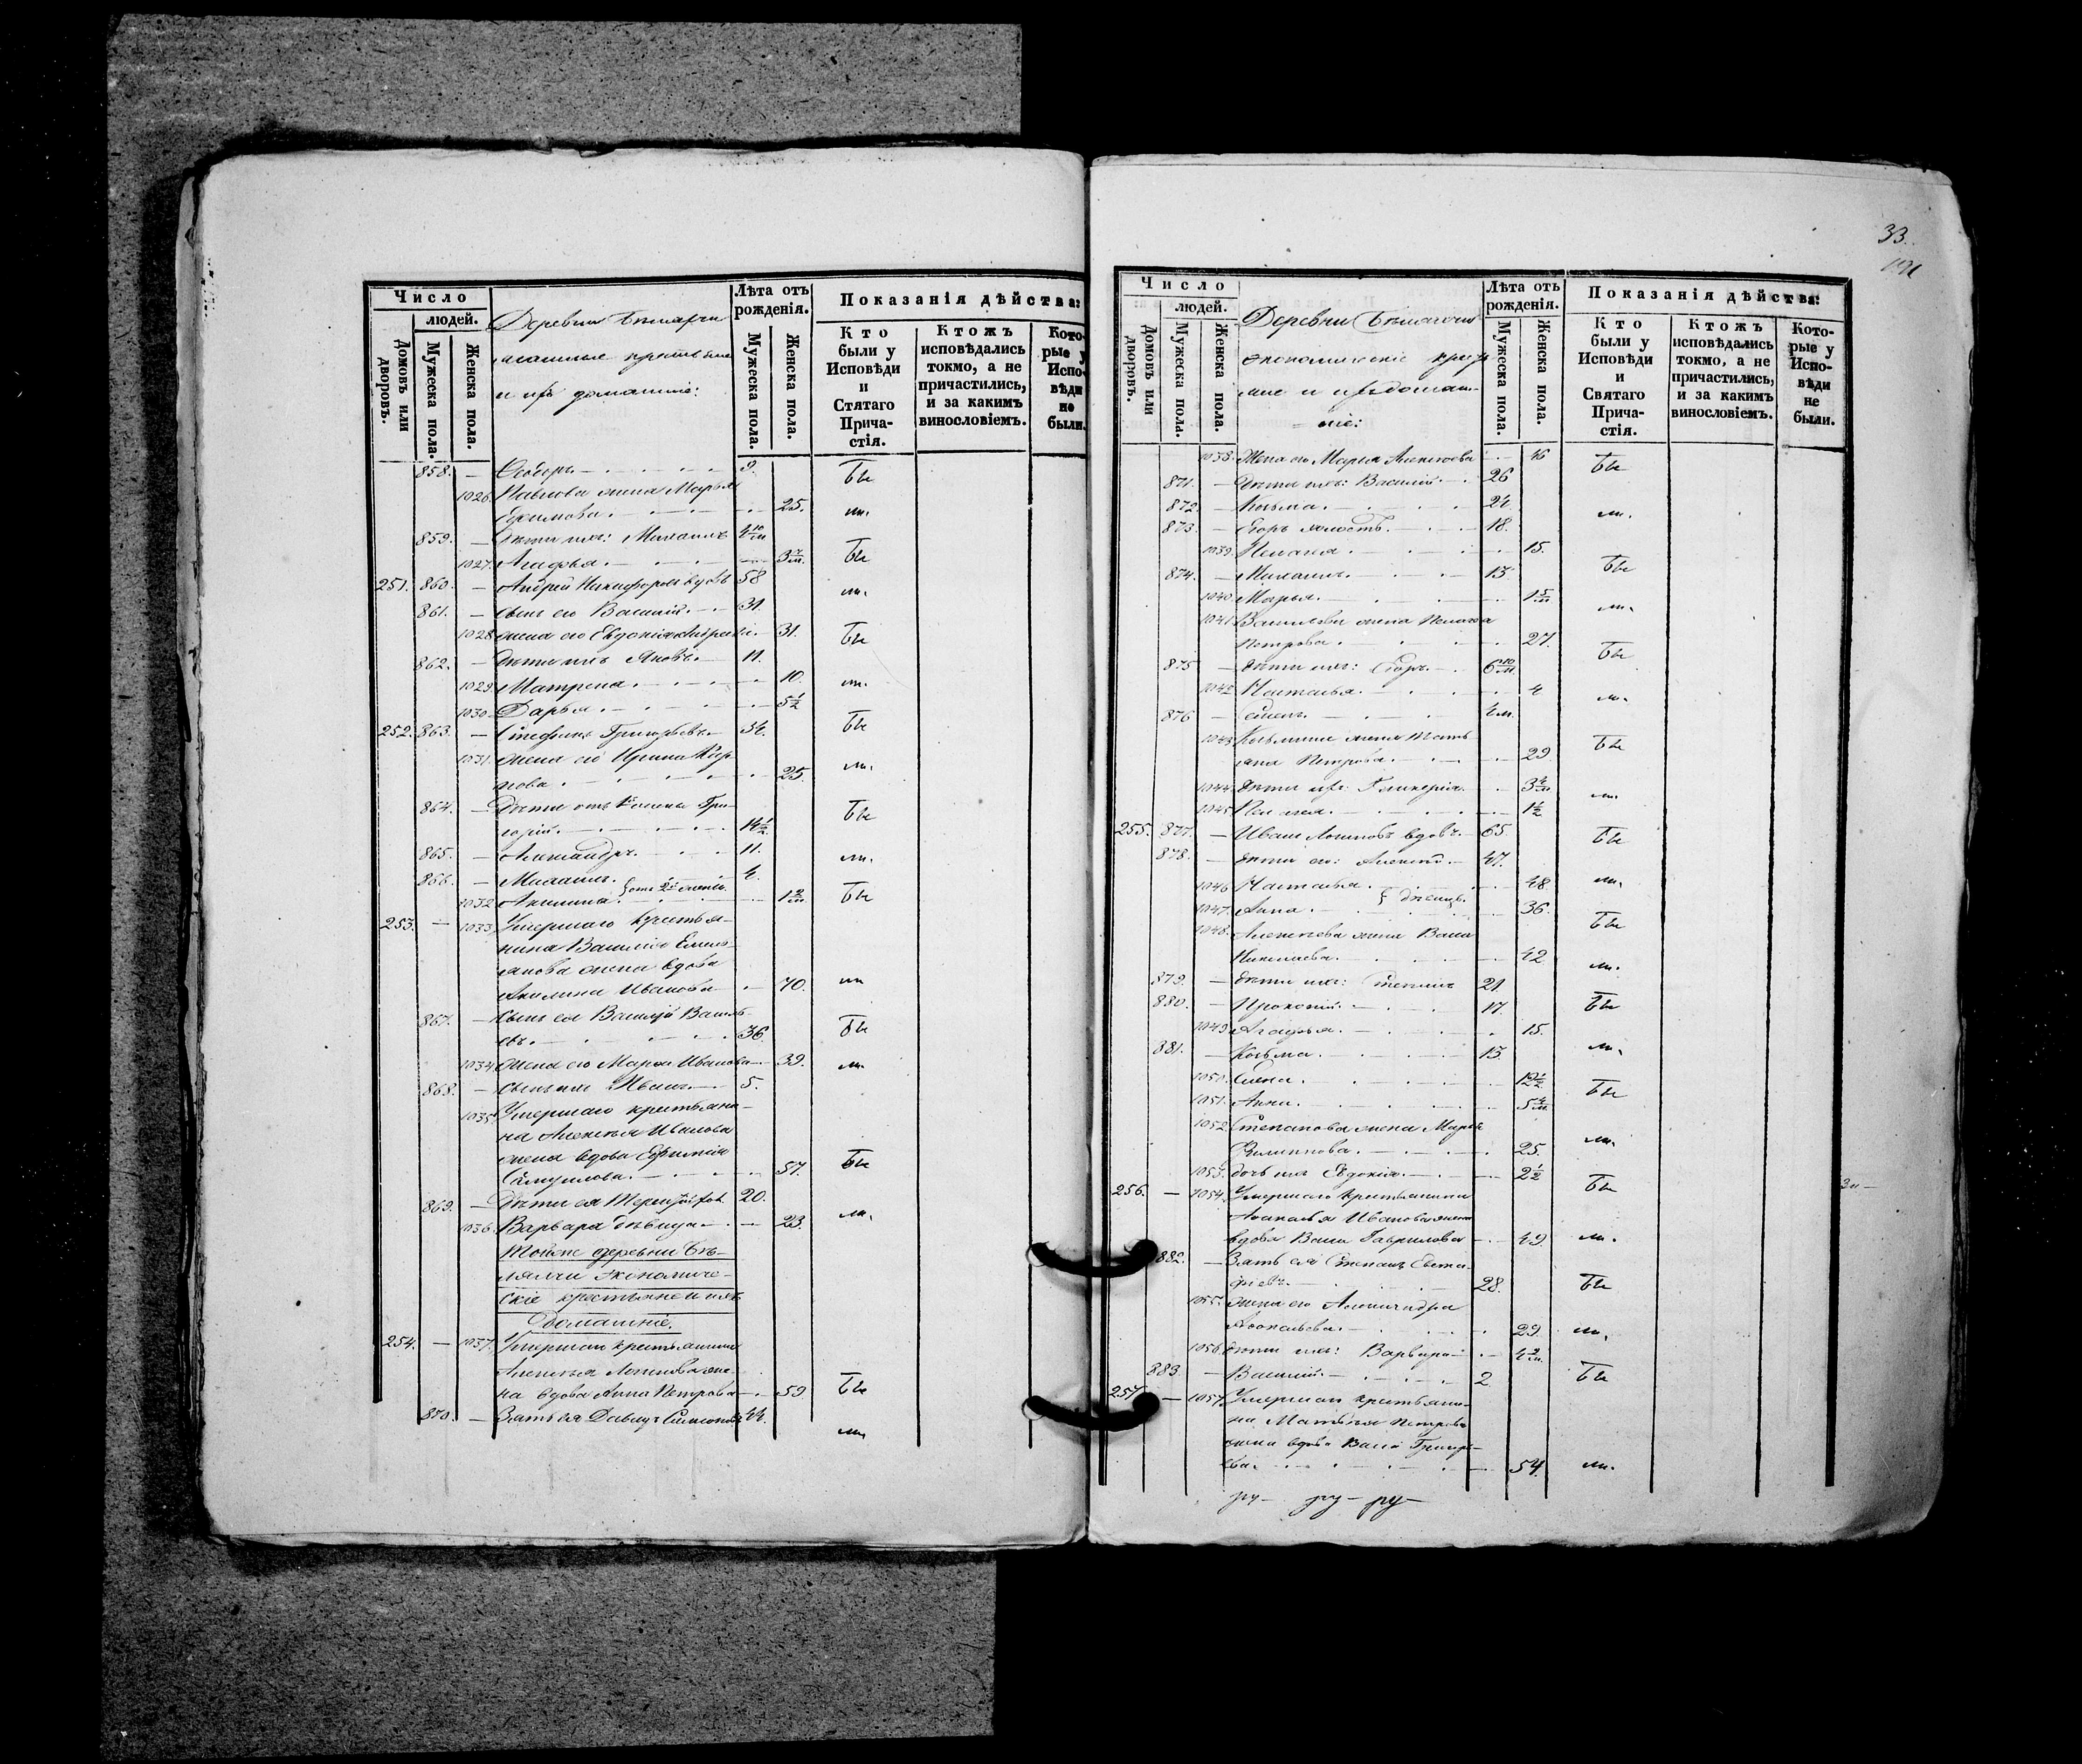 Число
людей.
Домовъ или дворовъ.
Мужеска пола.
Женска пола.
Деревни
и ихъ домашніе:
Лѣта отъ рожденія.
Мужеска пола.
Женска пола.
Показанія дѣйства:
Кто были у Исповѣди и Стятаго Причастія.
Ктожъ исповѣдались токмо, а не причастились, и за какимъ винословіемъ.
Которые у Исповѣди не были.
858. — 9. бы
1026. Павлова жена Марья
Ефимова. 25. ли.
859. — Дѣти ихъ: Михаилъ 4 10/м
1027. Агафья. 3 7/м. бы
251. 860. — Андрей Никифоровъ вдовъ 58 ли.
861. — сынъ его Василій. 31.
1028 жена его Евдокія 31. бы
862. — дѣти ихъ Яковъ. 11.
1029. Матрена. 10. ли.
1030. Дарья. 5 1/2
252. 863. — Стефанъ Григорьевъ. 34. бы
1031. жена его Ирина
25. ли.
864. — Дѣти отъ 1й жены Гри-
горій. 14 1/2. бы
865. — Александръ. 11. ли.
866. — Михаилъ. отъ 2й жены. 4.
1032 Акилина. 1 2/м. бы
253. — 1033. Умершаго крестья-
нина Василія Емель-
янова жена вдова
Акилина Иванова 70. ли
867. — сынъ ея Василій Василь-
евъ. 36. бы
1034. жена его Марья Иванова 39. ли.
868. — сынъ ихъ Иванъ. 5.
1035. Умершаго крестьяни-
на Алексѣя Иванова
жена вдова Евфимія
Самуилова. 57. бы
869. — Дѣти ея 20.
1036. Варвара дѣвица 23. ли.
Тойже деревни Бѣ-
экономиче-
скіе крестьяне и ихъ
Домашніе.
254. — 1037. Умершаго крестьянина
Алексѣя Логинова же-
на вдова Анна Петрова 59 бы
870. — Зять ея Давыдъ 44. ли
33.
Число
людей.
Домовъ или дворовъ.
Мужеска пола.
Женска пола.
Деревни
экономическіе кресть-
яне и ихъ домаш-
ніе:
Лѣта отъ рожденія.
Мужеска пола.
Женска пола.
Показанія дѣйства:
Кто были у Исповѣди и Святаго Причастія.
Ктожъ исповѣдались токмо, а не причастились, и за какимъ винословіемъ.
Которые у Исповѣди не были.
1038. Жена его Марья Алексѣева 46 бы
871. — Дѣти ихъ: Василій. 26
872. — Козьма. 24
873. — Егоръ холостъ. 18. ли.
1039. Пелагея. 15.
874. — Михаилъ. 13 бы
1040. Марья. 1 5/м
1041 Васильева жена Пелагея ли.
Петрова. 27.
875 — дѣти ихъ: Егоръ. 6 10/м. бы
1042 Наталья. 4
876 — Семенъ. 4 м. ли.
1043 Козьмина жена Тать-
яна Петрова. 29. бы
1044. дѣти ихъ: Гликерія. 3 4/м
1045. Пелагея. 1 1/2 ли.
255. 877. — Иванъ Логиновъ вдовъ. 65. бы
878. — дѣти его: Алексѣй. 47.
1046 Наталья. 48 ли.
дѣвицы.
1047. Анна. 36.
1048. Алексѣева жена Васса бы
Николаева. 42
879. — дѣти ихъ: Степанъ 21 ли.
880. — Прокопій. 17. бы
1049. Агафья. 15.
881. — Козьма. 13 ли.
1050. Елена. 12 1/2
1051. Анна. 5 4/м. бы
1052 Степанова жена Марья
Филиппова. 25. ли.
1053. дочь ихъ Евдокія. 2 1/2
256. — 1054. Умершаго крестьянина бы
Иванова жена
вдова Васса Гаврилова 49. ли.
882. — Зять ея Степанъ
28. бы
1055. жена его Александра
29. ли.
1056. дѣти ихъ: Варвара 4 2/м.
883. — Василій. 2 бы
257. — 1057. Умершаго крестьяни-
на Матвѣя Петрова
жена вдова Васса Григорь-
ева. 54. ли.
ру — ру — ру —